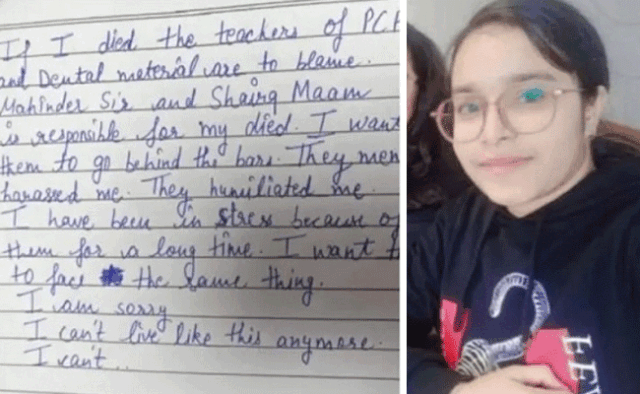 If I died the teachers of PCP
and Dental material are to blame.
Mahinder Sir and Shairg Maam
is responsible for my died. I want
them to go behind the bars. They men
harassed me. They humiliated me.
I have been in stress because of
them for a long time. I want t
to face the same thing.
I am sorry
I can't live like this anymore.
I can't..
2
LEE